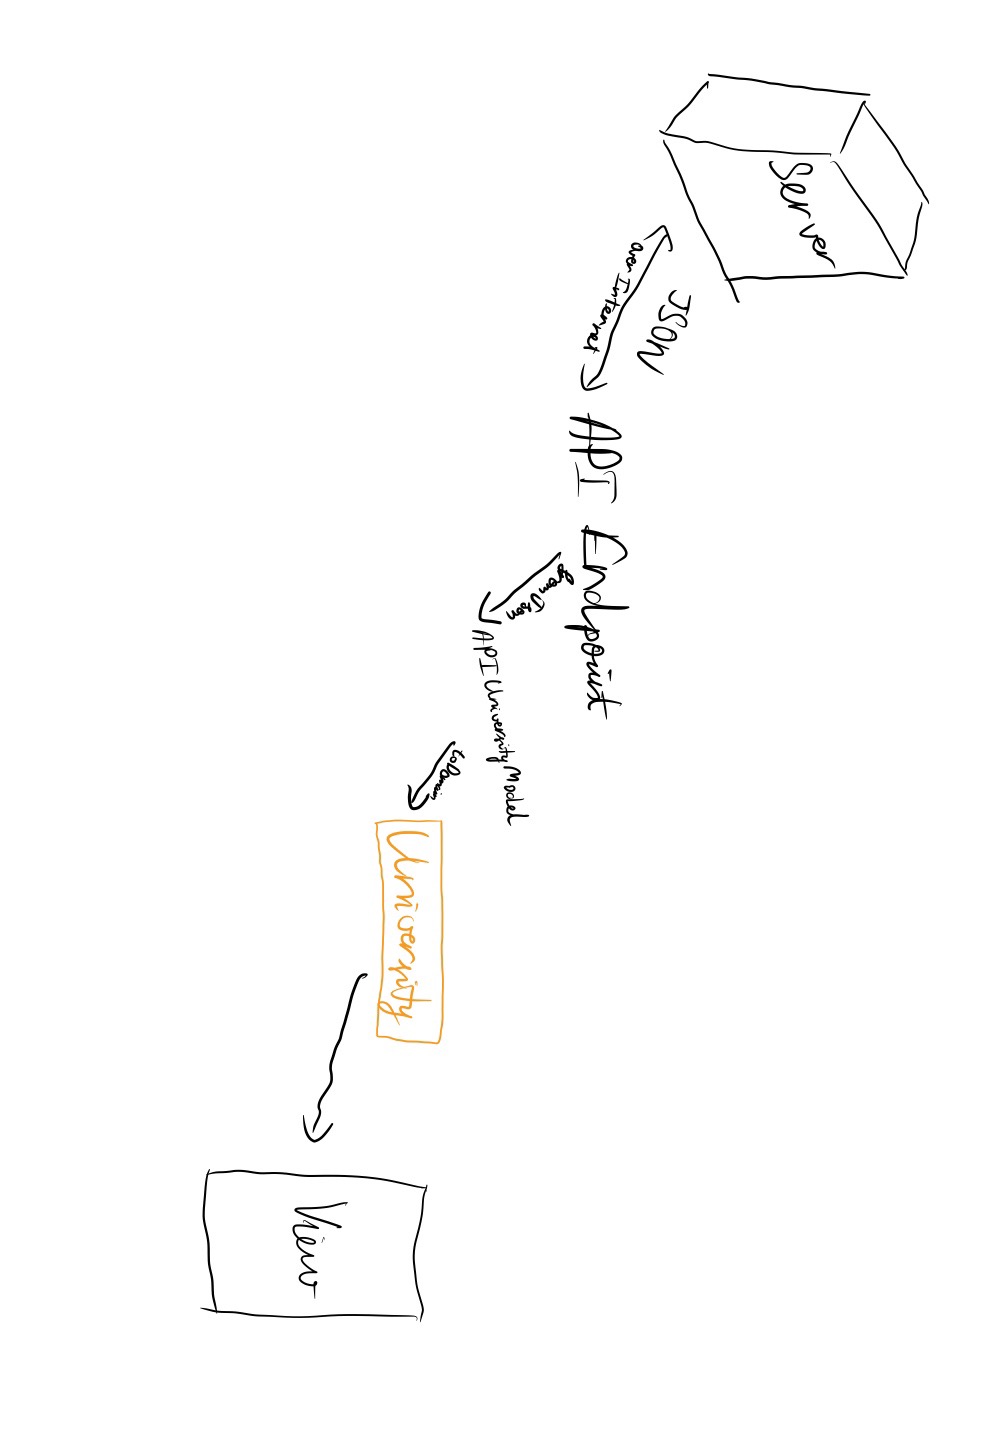 Server
JSON
over Internet
API Endpoint
from Json
API University Model
toDomain
University
View